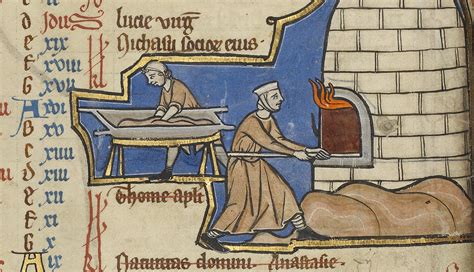 d Idus lucie virg
e xix Nichasii socior eius
f xviii
g xvii
A xvi
b xv
c xiiii
d xiii
e xii Thome apli
f xi
g x
A ix Nativitas domini Anastasie